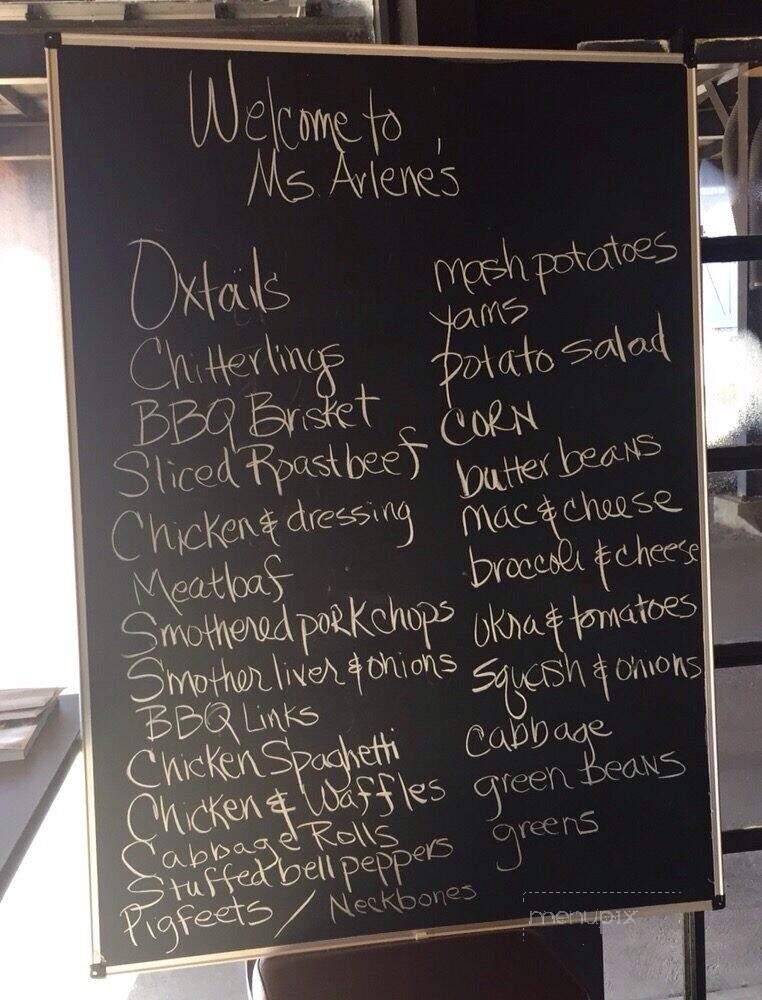 Welcome to
Ms Arlene's
Oxtails
Chitterlings
BBQ Brisket
Sliced Roastbeef
Chicken & dressing
Meatloaf
Smothered pork chops
Smother liver & onions
BBQ Links
Chicken Spaghetti
Chicken & Waffles
Cabbage Rolls
Stuffed bell peppers
Pigfeets / Neckbones
mash potatoes
yams
potato salad
CORN
butter beans
Mac & cheese
broccoli & cheese
okra & tomatoes
squash & onions
cabbage
green beans
greens
menupix